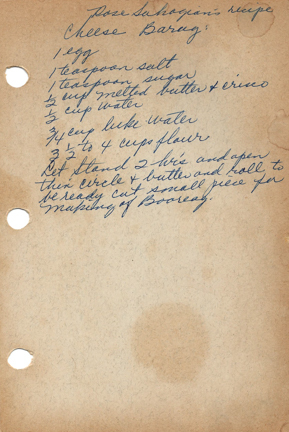 Rose Sahagian's recipe
Cheese Barag:
1 egg
1 teaspoon salt
1 teaspoon sugar
1/2 cup melted butter & crisco
1/2 cup water
3/4 cup luke water
3 1/2 to 4 cups flour
Let stand 2 hrs and open
thin circle & butter and roll to
be ready cut small piece for
making of Booreag.